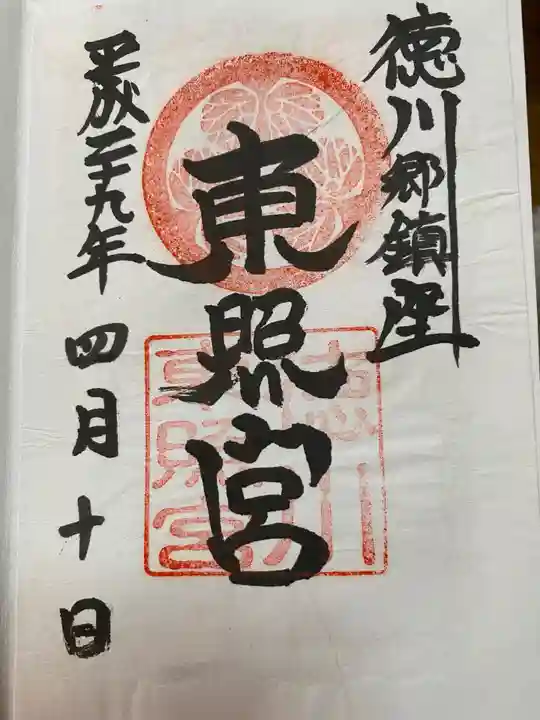 徳川郷鎮座
東照宮
徳川
東照宮
平成二十九年四月十日